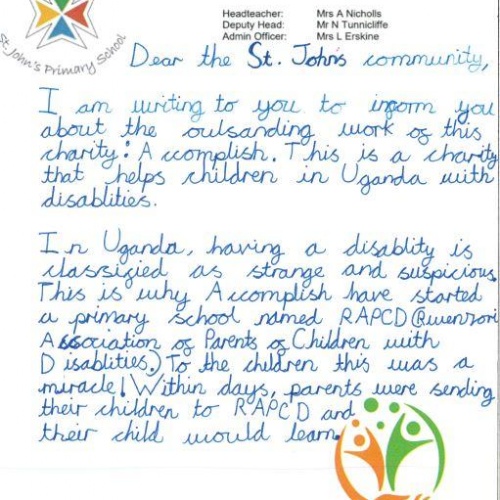 St. John's Primary School
Headteacher: Mrs A Nicholls
Deputy Head: Mr N Tunnicliffe
Admin Officer: Mrs L Erskine
Dear the St. John's community,
I am writing to you to inform you
about the oulsanding work of this
charity: Accomplish. This is a charity
that helps children in Uganda with
disablities.
In Uganda, having a disablity is
classified as strange and suspicious.
This is why Accomplish have started
a primary school named RAPCD(Rwenzori
Association of Parents of Children with
Disablities.) To the children this was a
miracle! Within days, parents were sending
their children to RAPCD and
their child would learn.